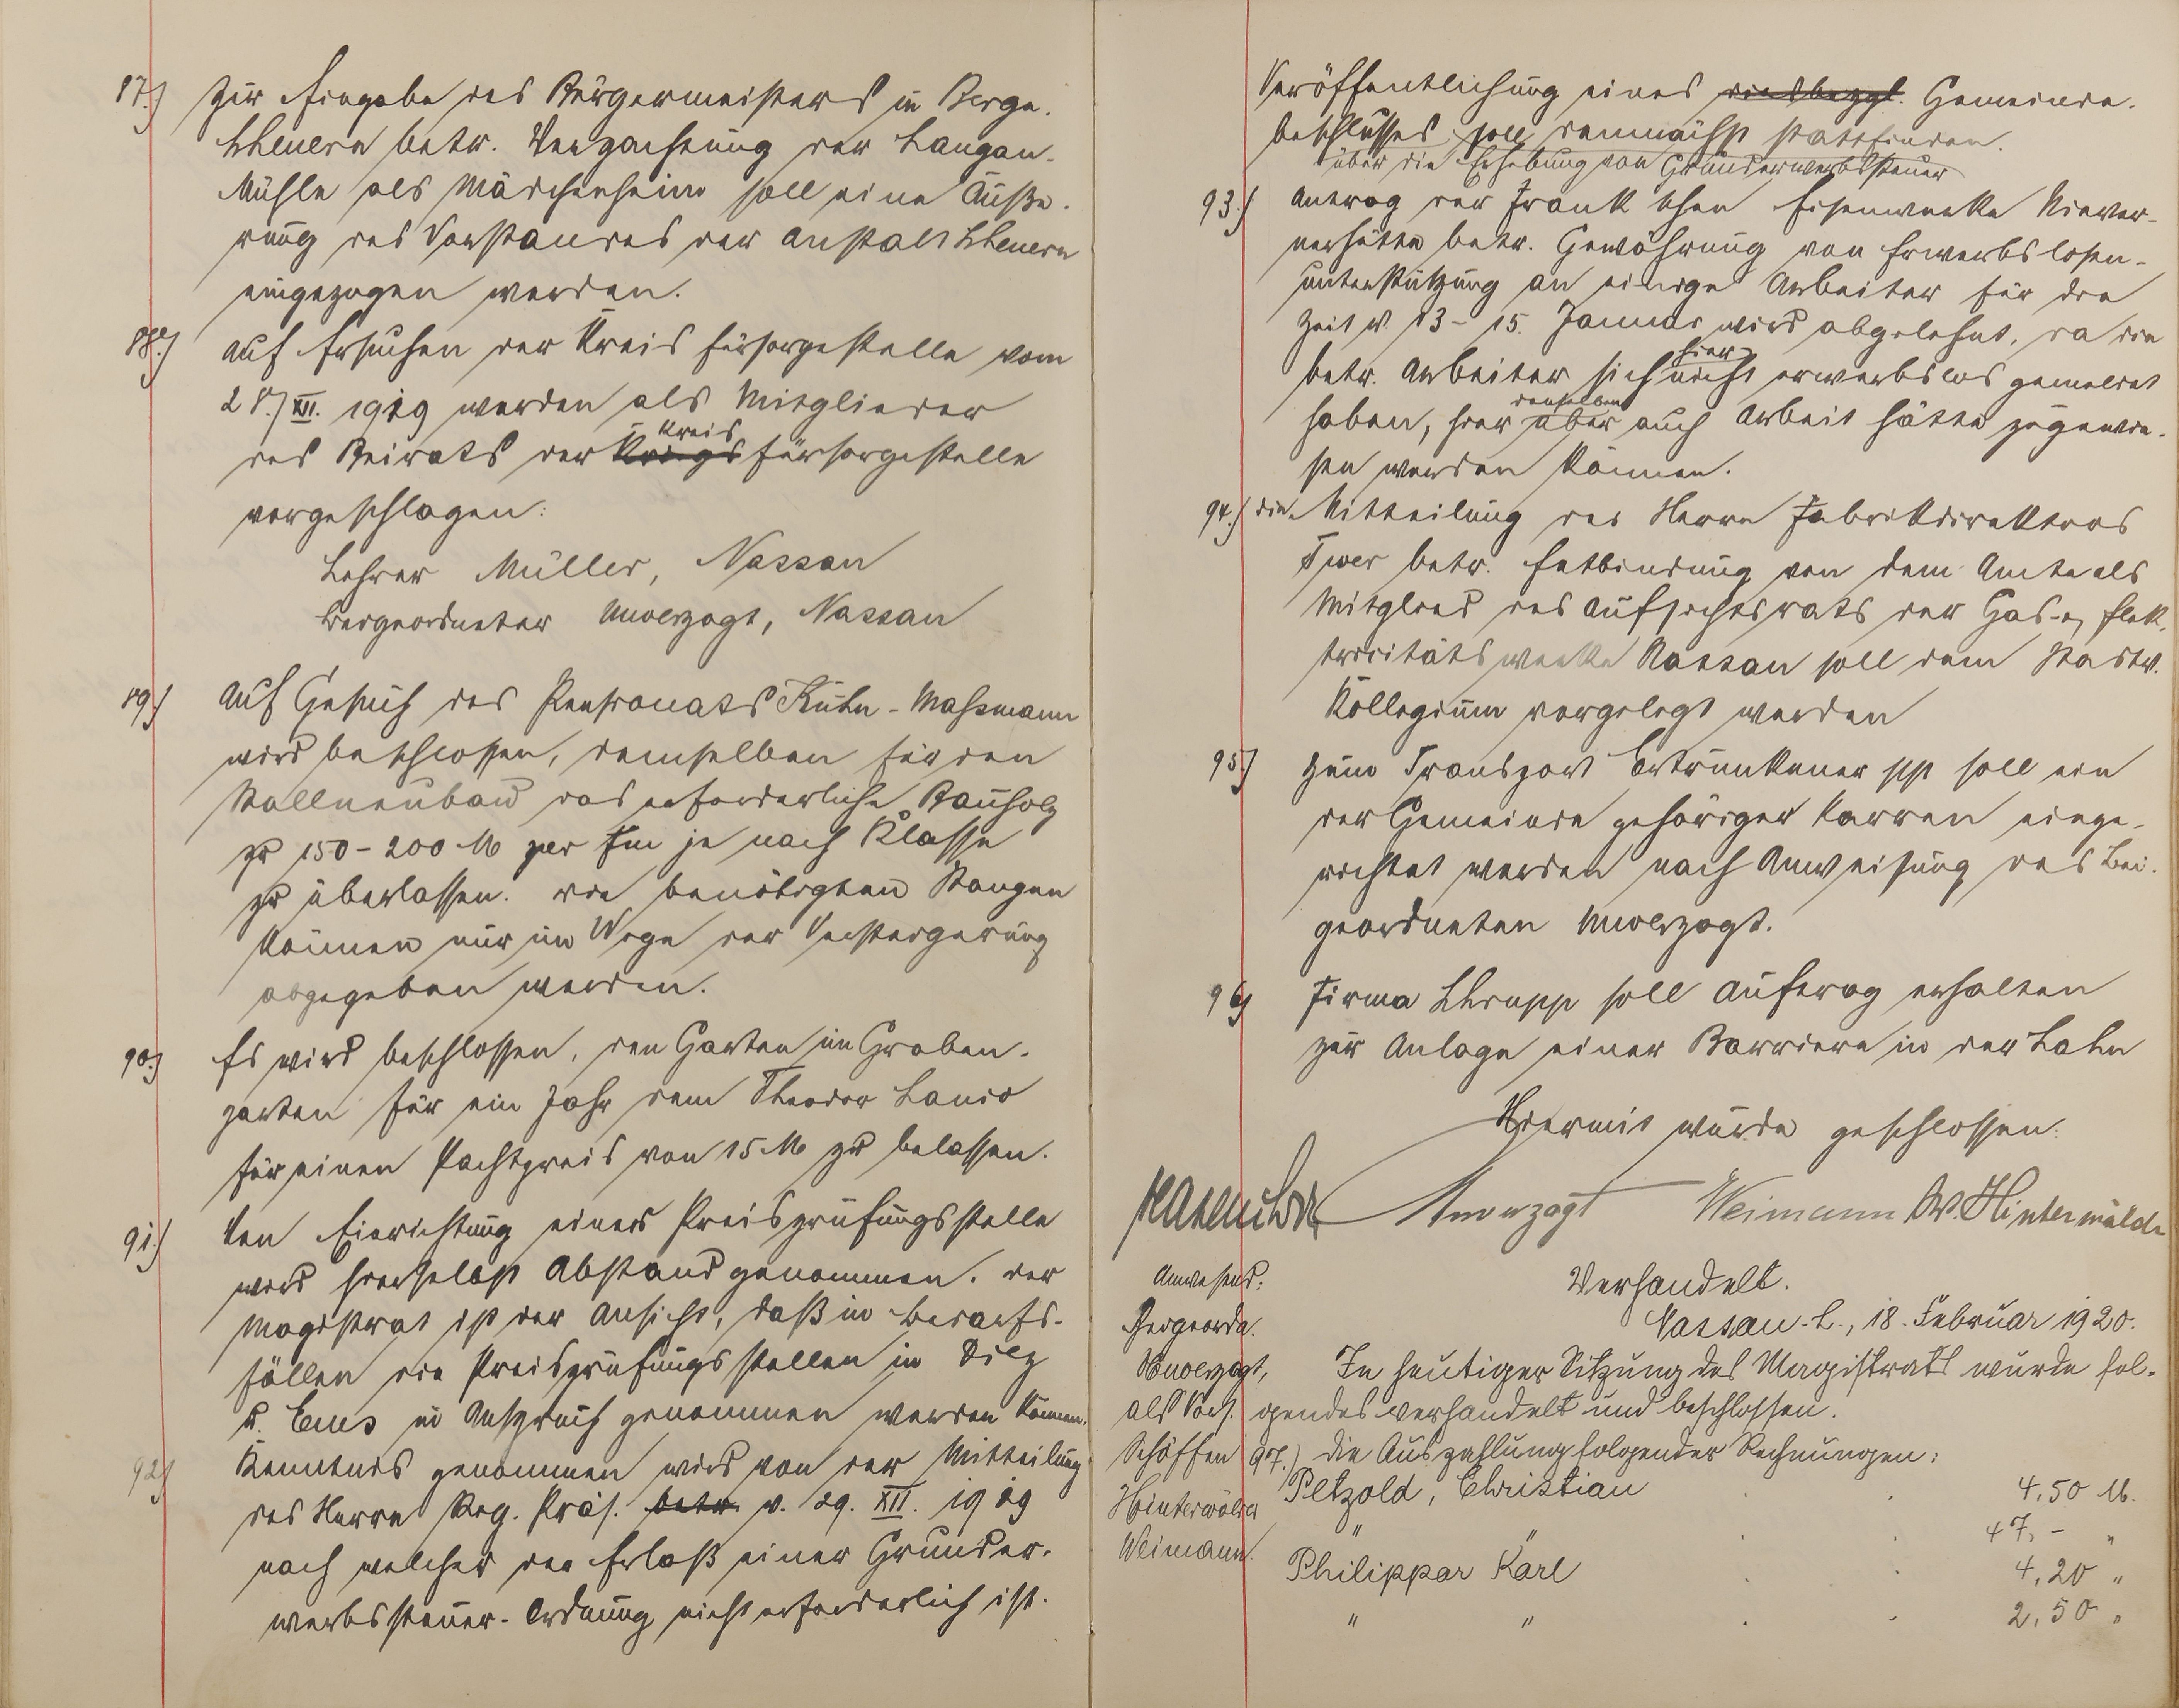 87.) Zur Eingabe des Bürgermeisters in Berg-
Scheuern betr. Verpachtung der Langau-
Mühle als Mädchenheim soll eine Äuße-
rung des Vorstandes der Anstalt Scheuern
eingezogen werden.
88.) Auf Ersuchen der Kreisfürsorgestelle vom
28./XII. 1919 werden als Mitglieder
des Beirats der Kriegs Kreis fürsorgestelle
vorgeschlagen:
Lehrer Müller, Nassau
Beigeordneter Unverzagt, Nassau
89.) Auf Gesuch des Pensionats Kuhn-Massmann
wird beschlossen, demselben für den
Stallneubau das erforderliche Bauholz
zu 150-200 M per Fm je nach Klasse
zu überlassen. Die benötigten Stangen
können nur im Wege der Versteigerung
abgegeben werden.
90.) Es wird beschlossen, den Garten im Graben-
garten für ein Jahr dem Theodor
für einen Pachtpreis von 15 M zu belassen.
91.) Von Einrichtung einer Preisprüfungsstelle
wird hierselbst Abstand genommen. Der
Magistrat ist der Ansicht, daß in Bedarfs-
fällen die Preisprüfungsstellen in Diez
u. Ems in Anspruch genommen werden können.
92.) Kenntnis genommen wird von der Mitteilung
des Herrn Reg. Präs. betr. v. 29. XII. 1919
nach welcher der Erlaß einer Grunder-
werbssteuer-Ordnung nicht erforderlich ist.
Veröffentlichung eines diesbezgl. Gemeinde-
beschlusses soll demnächst stattfinden.
über die Erhebung von Grunderwerbssteuer
93.) Antrag der Frank'schen Eisenwerke Niever-
nerhütte betr. Gewährung von Erwerbslosen-
unterstützung an einige Arbeiter für die
Zeit v. 13-15. Januar wird abgelehnt, da die
hier
betr. Arbeiter sich nicht erwerbslos gemeldet
denselben
haben, hier aber auch Arbeit hätte zugewie-
sen werden können.
94.) Die Mitteilung des Herrn Fabrikdirektors
betr. Entbindung von dem Amte als
Mitglied des Aufsichtsrats der Gas- u. Elek-
tricitätswerke Nassau soll dem Stadtv.
Kollegium vorgelegt werden
95.) Zum Transport Ertrunkener pp soll ein
der Gemeinde gehöriger Karren einge-
richtet werden nach Anweisung des Bei-
geordneten Unverzagt.
96.) Firma soll Auftrag erhalten
zur Anlage einer Barriere in der Lahn
Hiermit wurde geschlossen.
Unverzagt Weimann W. Hinterwälder
Anwesend:
Beigeordn.
Unverzagt,
als Vors.
Schöffen
Hinterwälder
Weimann.
Verhandelt.
Nassau-L., 18. Februar 1920.
In heutiger Sitzung des Magistrats wurde fol-
gendes verhandelt und beschlossen.
97.) Die Auszahlung folgender Rechnungen:
Petzold, Christian 4,50 M.
" " 47,- "
Philippar Karl 4,20 "
" " 2,50 "